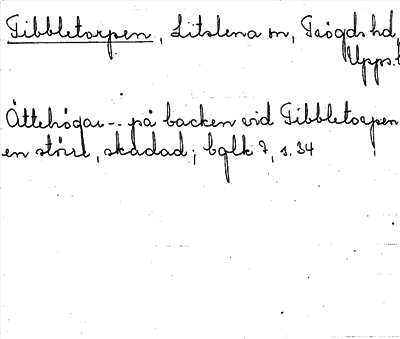 Tibbletorpen, Litslena sn, Trögds hd,
Upps.l
Ättehögar -- på backen vid Tibbletorpen
en större, skadad; bglk 7, s. 34